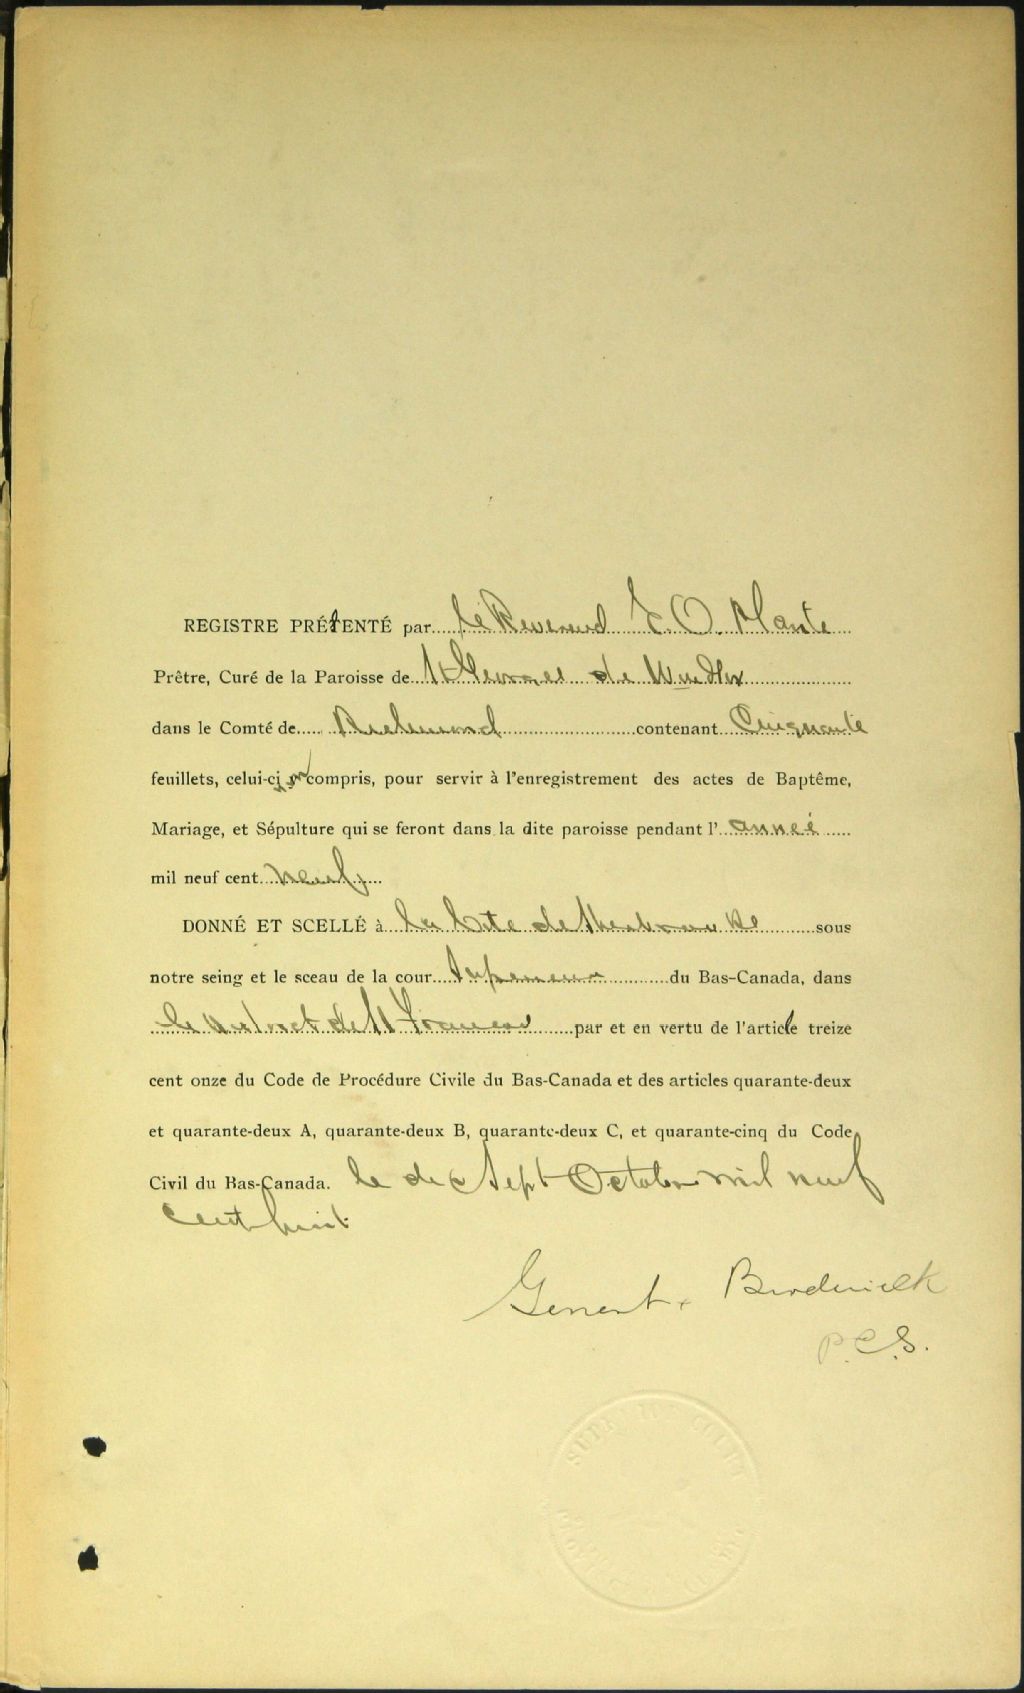 REGISTRE PRÉSENTÉ par le Reverend E. O. Plante
Prêtre, Curé de la Paroisse de St Georges de Windsor
dans le Comté de Richmond contenant Cinquante
feuillets, celui-ci compris, pour servir à l'enregistrement des actes de Baptême,
Mariage, et Sépulture qui se feront dans la dite paroisse pendant l' année
mil neuf cent neuf
DONNÉ ET SCELLÉ à la Cité de Sherbrooke sous
notre seing et le sceau de la cour Superieure du Bas-Canada, dans
le district de St Francois par et en vertu de l'article treize
cent onze du Code de Procédure Civile du Bas-Canada et des articles quarante-deux
et quarante-deux A, quarante-deux B, quarante-deux C, et quarante-cinq du Code
Civil du Bas-Canada. le Sept Octobre mil neuf
cent huit
Broderick
P.C.S.
SUPERIOR COURT